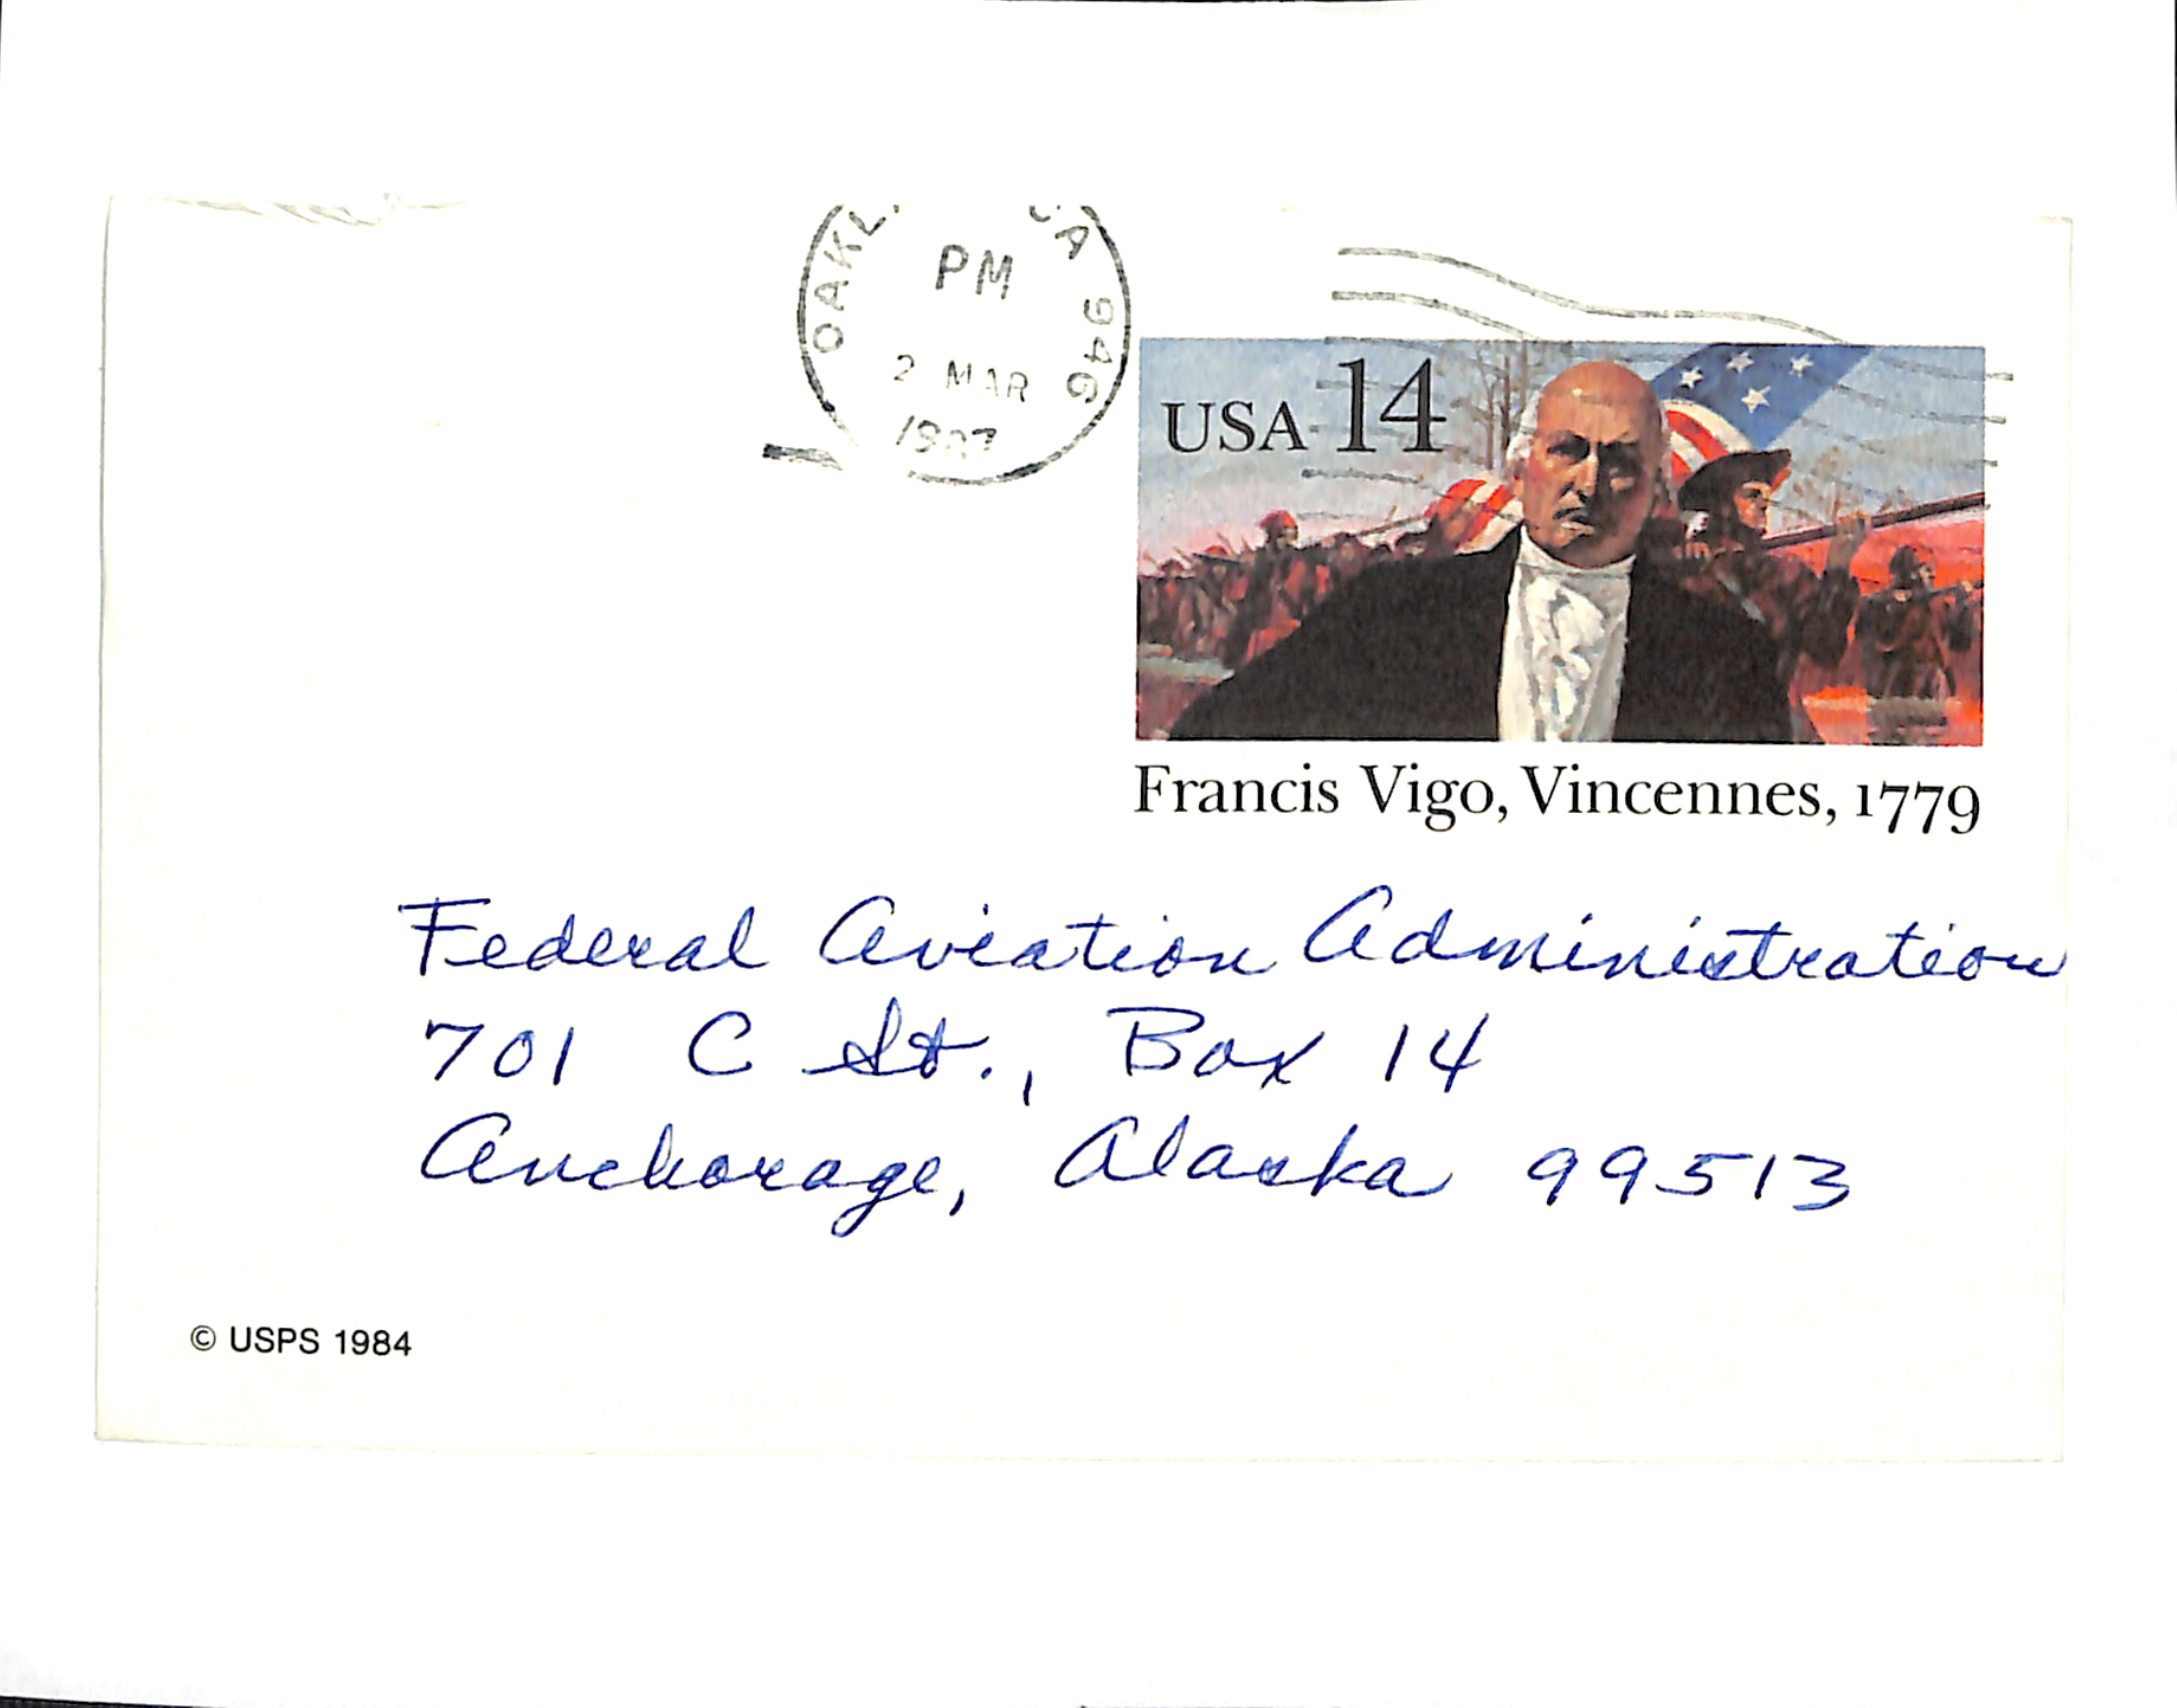 PM
2 MAR
USA 14
Francis Vigo, Vincennes, 1779
Federal Aviation Administration
701 C St., Box 14
Anchorage, Alaska 99513
© USPS 1984